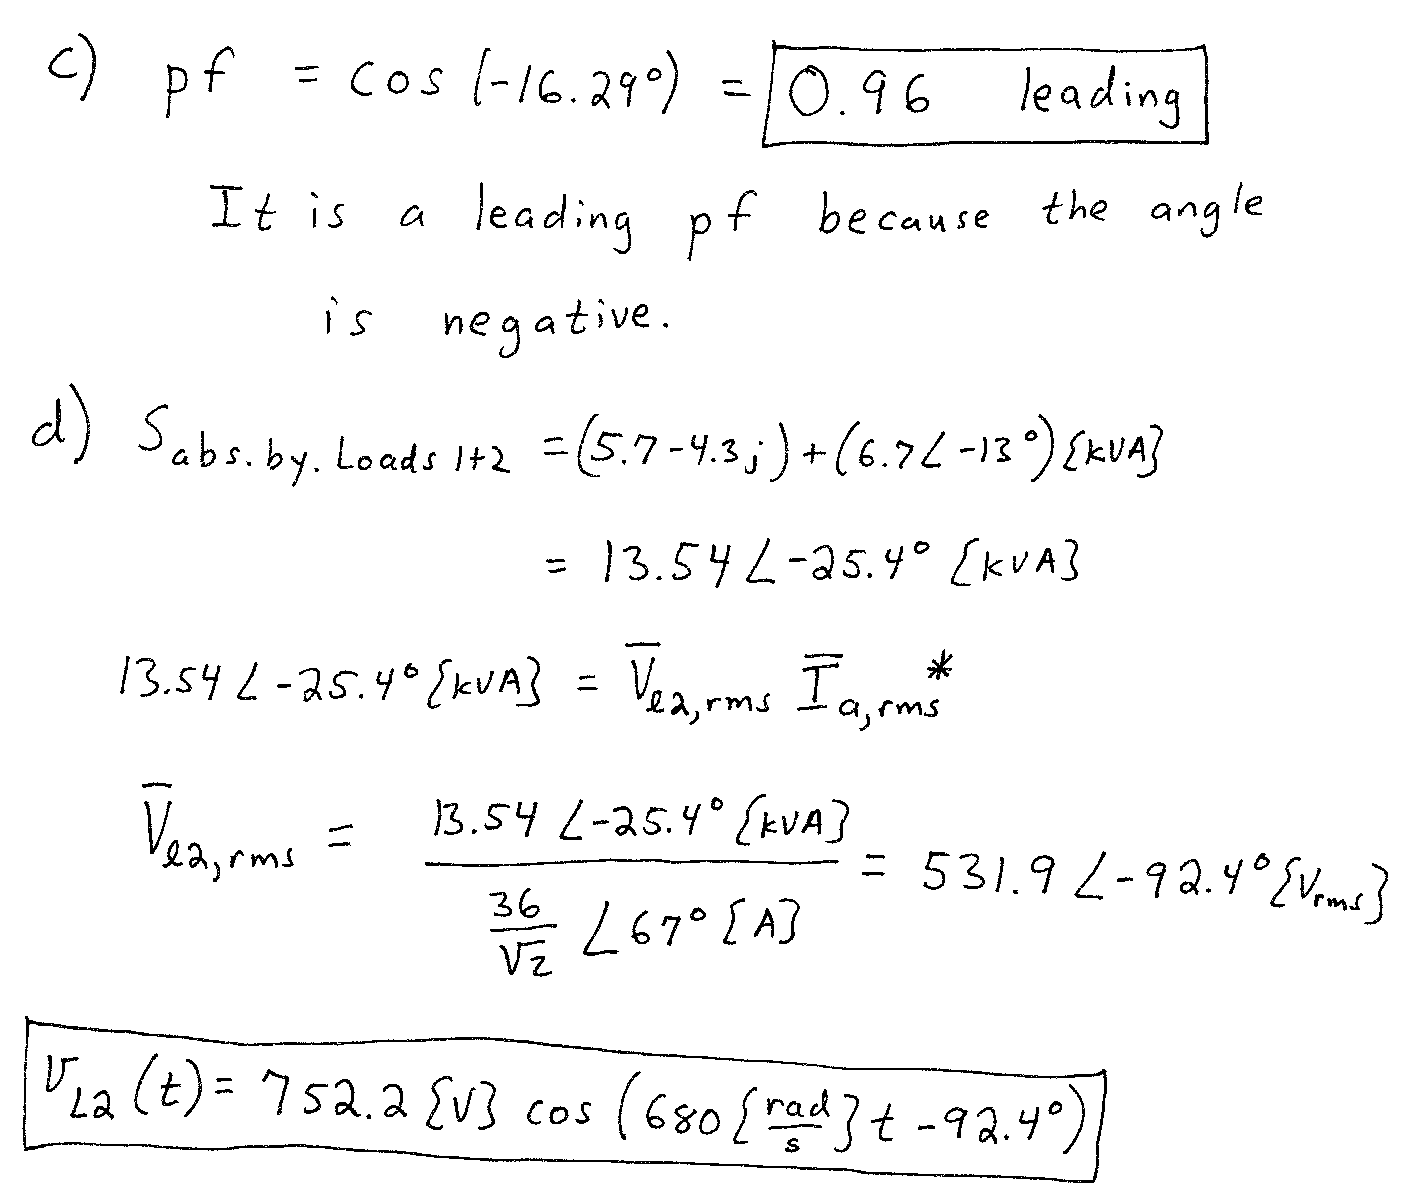 c) pf = cos (-16.29°) = 0.96 leading
It is a leading pf because the angle
is negative.
d) S abs. by. Loads 1+2 = (5.7-4.3j) + (6.7∠-13°) {kVA}
= 13.54∠-25.4° {kVA}
13.54∠-25.4° {kVA} = V̅ℓ2,rms I̅a,rms*
V̅ℓ2,rms = 13.54∠-25.4° {kVA} / (36/√2 ∠67° {A}) = 531.9∠-92.4° {Vrms}
vL2(t) = 752.2 {V} cos (680 {rad/s} t - 92.4°)